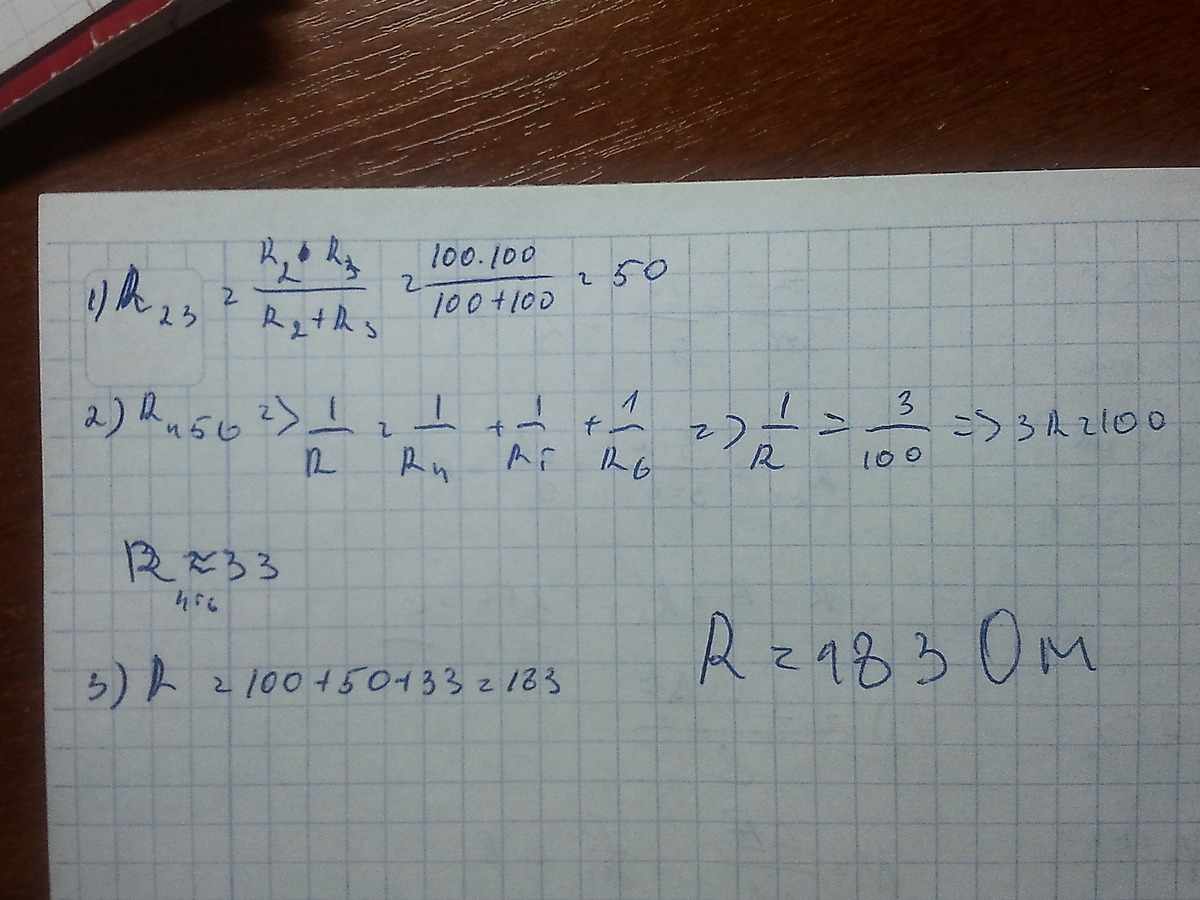 1) R₂₃ = (R₂ • R₃)/(R₂ + R₃) = (100·100)/(100+100) = 50
2) R₄₅₆ => 1/R = 1/R₄ + 1/R₅ + 1/R₆ => 1/R = 3/100 => 3R = 100
R₄₅₆ ≈ 33
3) R = 100+50+33 = 183
R = 183 Ом